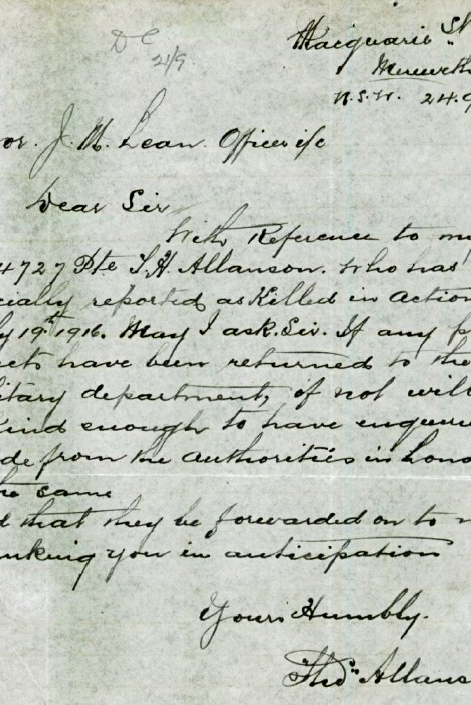 Dc
21/9
Macquarie St
N.S.W. 24.9
or. J. M. Lean. Officer i/c
Dear Sir
With Reference to m
4727 Pte T.H. Allanson. Who has
cially reported as Killed in Action
ly 19th 1916. May I ask. Sir. If any p
cts have been returned to the
itary department, if not will
kind enough to have enquir
de from the Authorities in Lond
he same
d that they be forwarded on to m
nking you in anticipation
Yours Humbly.
Thos Allans